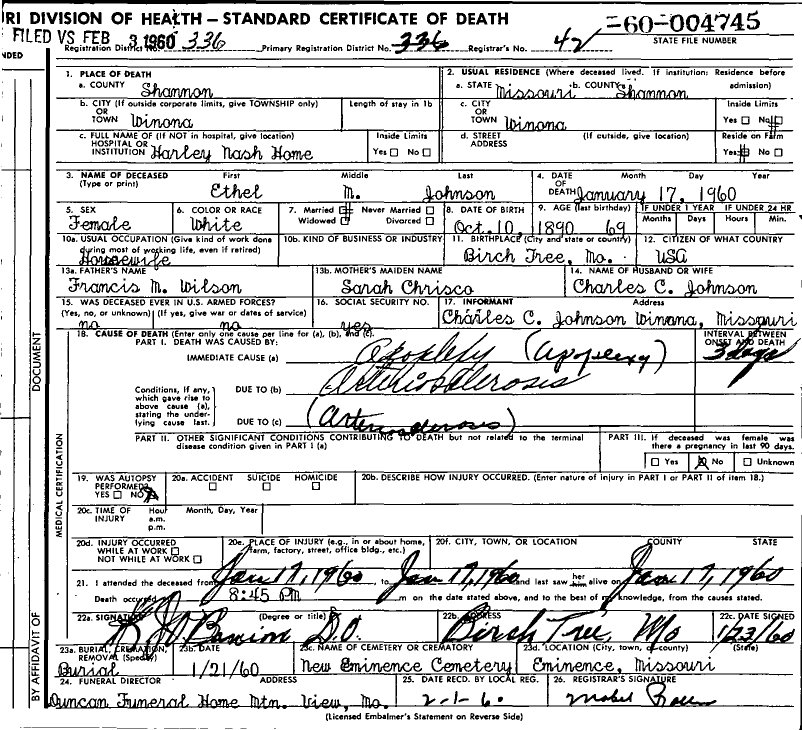 RI DIVISION OF HEALTH – STANDARD CERTIFICATE OF DEATH
-60-004745
FILED VS FEB 3 1960
STATE FILE NUMBER
Registration District No. 336 Primary Registration District No. 336 Registrar's No. 42
NDED
1. PLACE OF DEATH
a. COUNTY Shannon
2. USUAL RESIDENCE (Where deceased lived. If institution: Residence before admission)
a. STATE Missouri b. COUNTY Shannon
b. CITY (If outside corporate limits, give TOWNSHIP only) OR TOWN Winona
Length of stay in 1b
c. CITY OR TOWN Winona
Inside Limits Yes No
c. FULL NAME OF (If NOT in hospital, give location) HOSPITAL OR INSTITUTION Harley Nash Home
Inside Limits Yes No
d. STREET ADDRESS (If outside, give location)
Reside on Farm Yes No
3. NAME OF DECEASED (Type or print)
First Middle Last
Ethel M. Johnson
4. DATE OF DEATH Month Day Year
January 17, 1960
5. SEX Female
6. COLOR OR RACE White
7. Married Never Married Widowed Divorced
8. DATE OF BIRTH Oct. 10, 1890
9. AGE (last birthday) 69
IF UNDER 1 YEAR Months Days
IF UNDER 24 HR Hours Min.
10a. USUAL OCCUPATION (Give kind of work done during most of working life, even if retired) Housewife
10b. KIND OF BUSINESS OR INDUSTRY
11. BIRTHPLACE (City and state or country) Birch Tree, Mo.
12. CITIZEN OF WHAT COUNTRY USA
13a. FATHER'S NAME Francis M. Wilson
13b. MOTHER'S MAIDEN NAME Sarah Chrisco
14. NAME OF HUSBAND OR WIFE Charles C. Johnson
15. WAS DECEASED EVER IN U.S. ARMED FORCES? (Yes, no, or unknown) (If yes, give war or dates of service) no no
16. SOCIAL SECURITY NO. yes
17. INFORMANT Address
Charles C. Johnson Winona, Missouri
18. CAUSE OF DEATH (Enter only one cause per line for (a), (b), and (c).
PART I. DEATH WAS CAUSED BY:
INTERVAL BETWEEN ONSET AND DEATH
IMMEDIATE CAUSE (a) Apoplexy (Apoplexy) 3 days
Conditions, if any, which gave rise to above cause (a), stating the underlying cause last.
DUE TO (b) Arteriosclerosis
DUE TO (c) (Arteriosclerosis)
PART II. OTHER SIGNIFICANT CONDITIONS CONTRIBUTING TO DEATH but not related to the terminal disease condition given in PART I (a)
PART III. If deceased was female was there a pregnancy in last 90 days.
Yes No Unknown
19. WAS AUTOPSY PERFORMED? YES NO
20a. ACCIDENT SUICIDE HOMICIDE
20b. DESCRIBE HOW INJURY OCCURRED. (Enter nature of injury in PART I or PART II of item 18.)
20c. TIME OF INJURY Hour a.m. p.m. Month, Day, Year
20d. INJURY OCCURRED WHILE AT WORK NOT WHILE AT WORK
20e. PLACE OF INJURY (e.g., in or about home, farm, factory, street, office bldg., etc.)
20f. CITY, TOWN, OR LOCATION COUNTY STATE
21. I attended the deceased from Jan 17, 1960, to Jan 17, 1960 and last saw her alive on Jan 17, 1960
Death occurred 8:45 PM m on the date stated above, and to the best of my knowledge, from the causes stated.
22a. SIGNATURE (Degree or title) D.O.
22b. ADDRESS Birch Tree, Mo
22c. DATE SIGNED 1/23/60
23a. BURIAL, CREMATION, REMOVAL (Specify) Burial
23b. DATE 1/21/60
23c. NAME OF CEMETERY OR CREMATORY New Eminence Cemetery
23d. LOCATION (City, town, or county) (State) Eminence, Missouri
24. FUNERAL DIRECTOR ADDRESS
Duncan Funeral Home Mtn. View, Mo.
25. DATE RECD. BY LOCAL REG. 2-1-60
26. REGISTRAR'S SIGNATURE Mabel
(Licensed Embalmer's Statement on Reverse Side)
DOCUMENT
MEDICAL CERTIFICATION
BY AFFIDAVIT OF